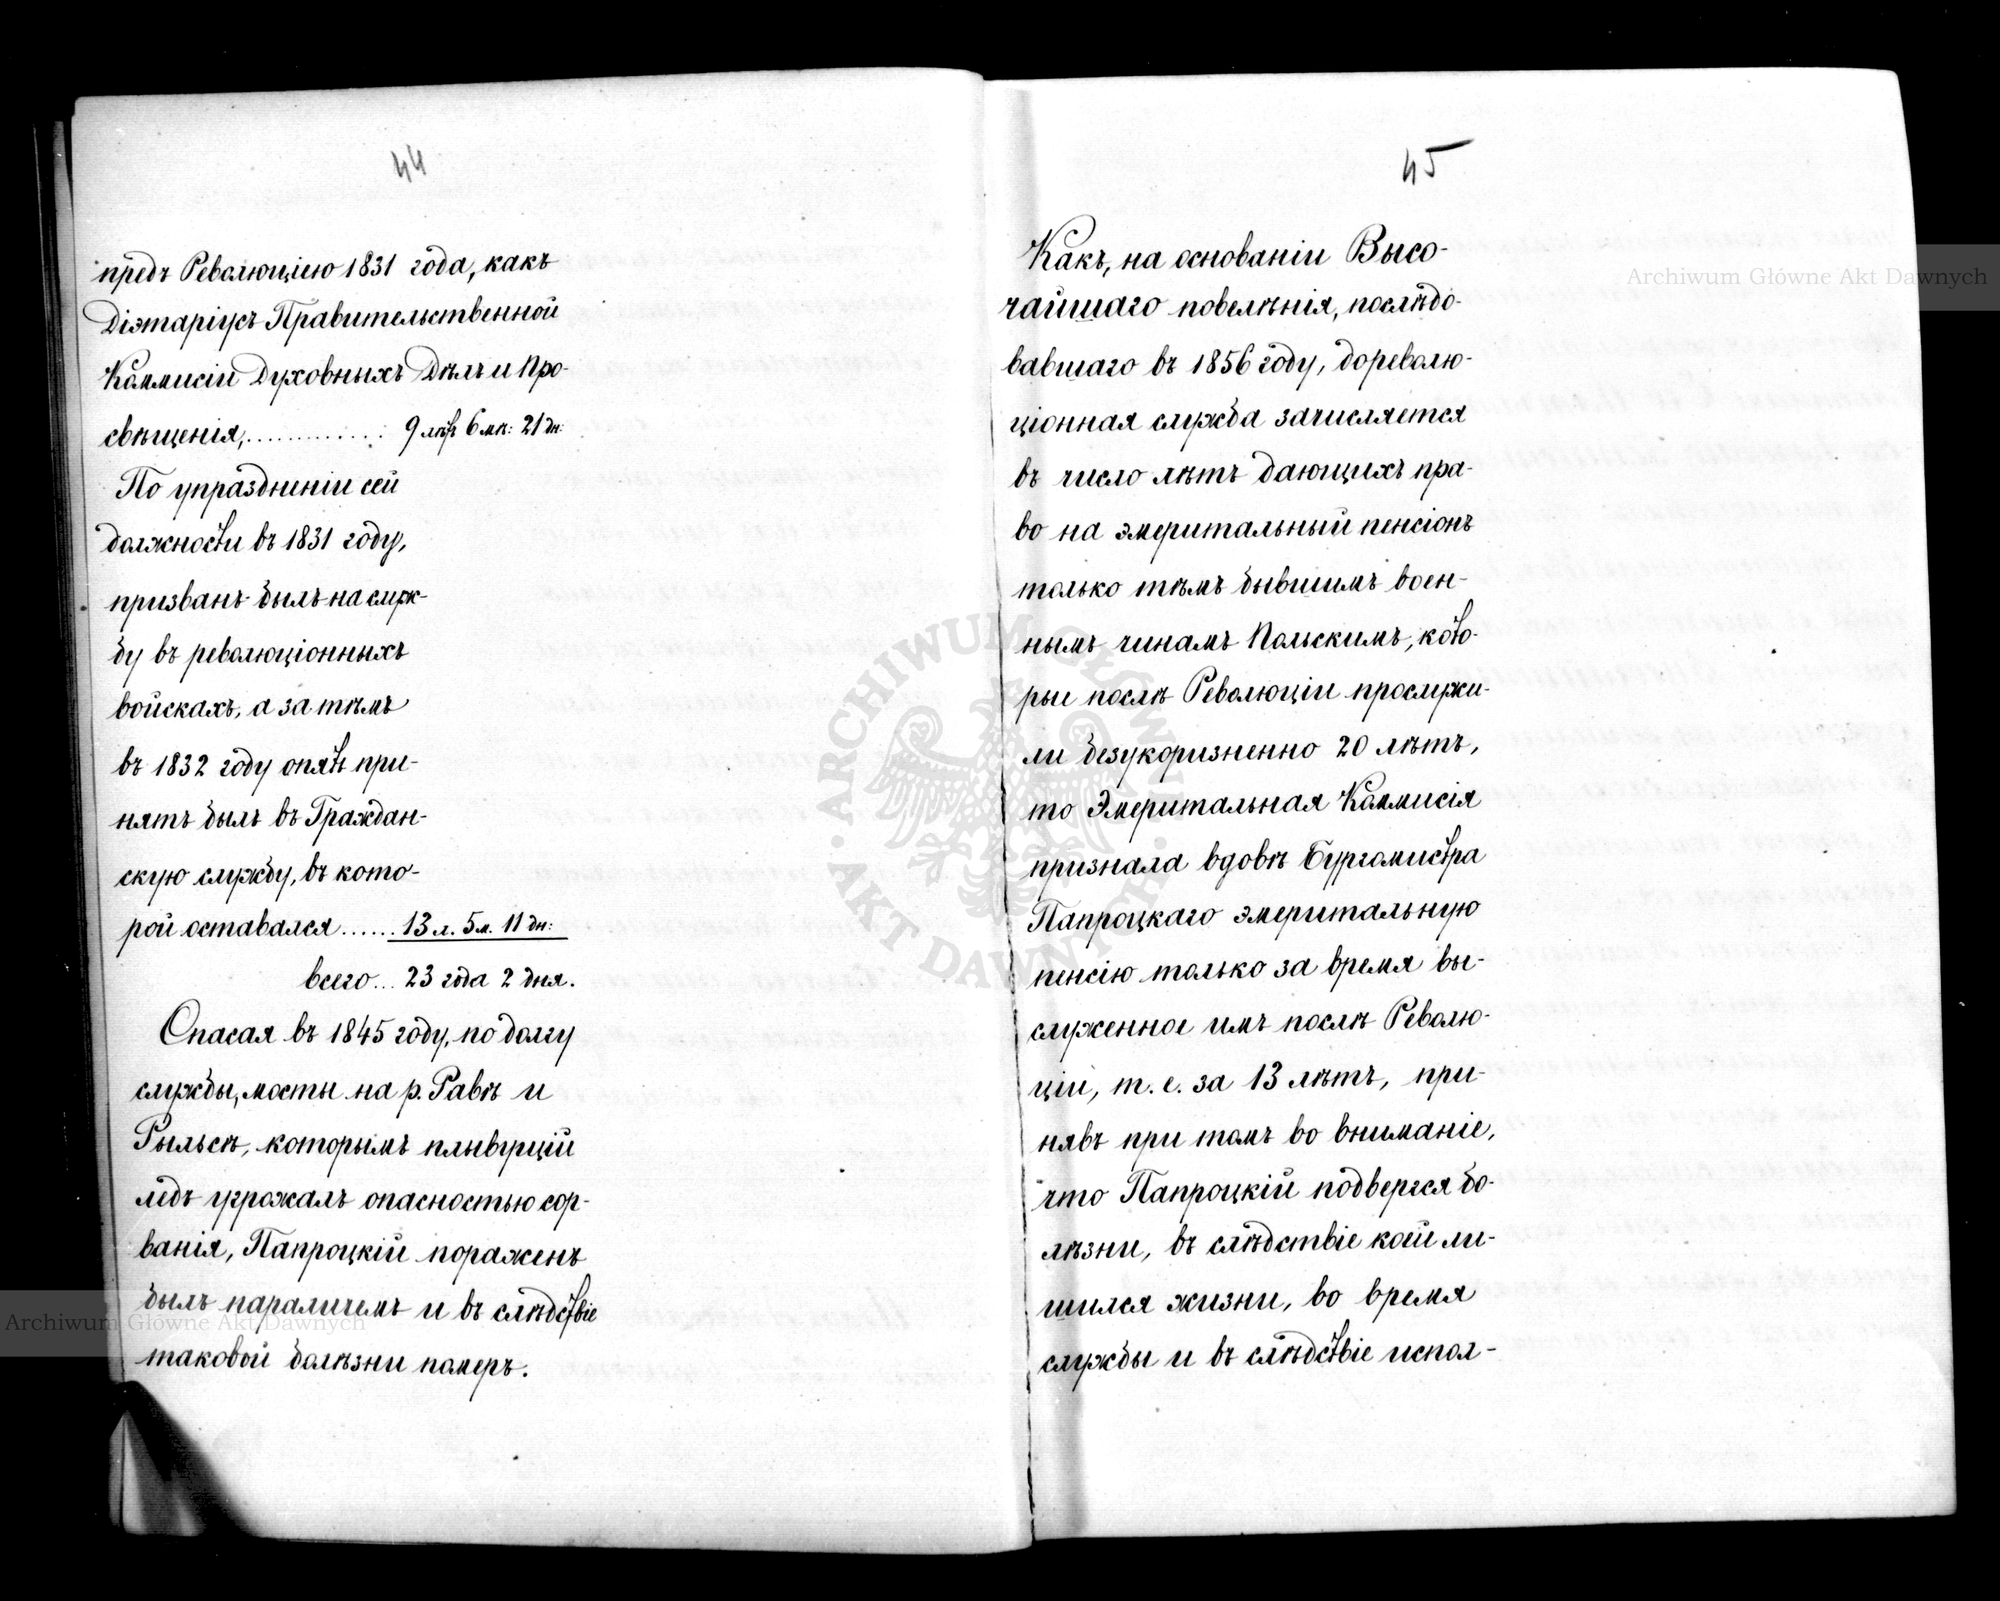 44
предъ Революціею 1831 года, какъ
Діэтаріусъ Правительственной
Коммисіи Духовныхъ Дѣлъ и Про-
свѣщенія,............ 9 лѣтъ 6 мѣ: 21 дн:
По упраздненіи сей
должности въ 1831 году,
призванъ былъ на служ-
бу въ революціонныхъ
войскахъ, а за тѣмъ
въ 1832 году опять при-
нятъ былъ въ Граждан-
скую службу, въ кото-
рой оставался...... 13 л. 5 м. 11 дн:
всего... 23 года 2 дня.
Спасая въ 1845 году, по долгу
службы, мосты на р. Равѣ и
Рыльсѣ, которымъ плывущій
ледъ угрожалъ опасностью сор-
ванія, Папроцкій пораженъ
былъ параличемъ и въ слѣдствіе
таковой болѣзни померъ.
45
Какъ, на основаніи Высо-
чайшаго повелѣнія, послѣдо-
вавшаго въ 1856 году, дореволю-
ціонная служба зачисляется
въ число лѣтъ дающихъ пра-
во на эмеритальный пенсіонъ
только тѣмъ бывшимъ воен-
нымъ чинамъ Польскимъ, кото-
рые послѣ Революціи прослужи-
ли безукоризненно 20 лѣтъ,
то Эмеритальная Коммисія
признала вдовѣ Бургомистра
Папроцкаго эмеритальную
пенсію только за время вы-
служенное имъ послѣ Револю-
ціи, т. е. за 13 лѣтъ, при-
нявъ при томъ во вниманіе,
что Папроцкій подвергся бо-
лѣзни, въ слѣдствіе коей ли-
шился жизни, во время
службы и въ слѣдствіе испол-
Archiwum Główne Akt Dawnych
Archiwum Główne Akt Dawnych
ARCHIWUM GŁÓWNE AKT DAWNYCH